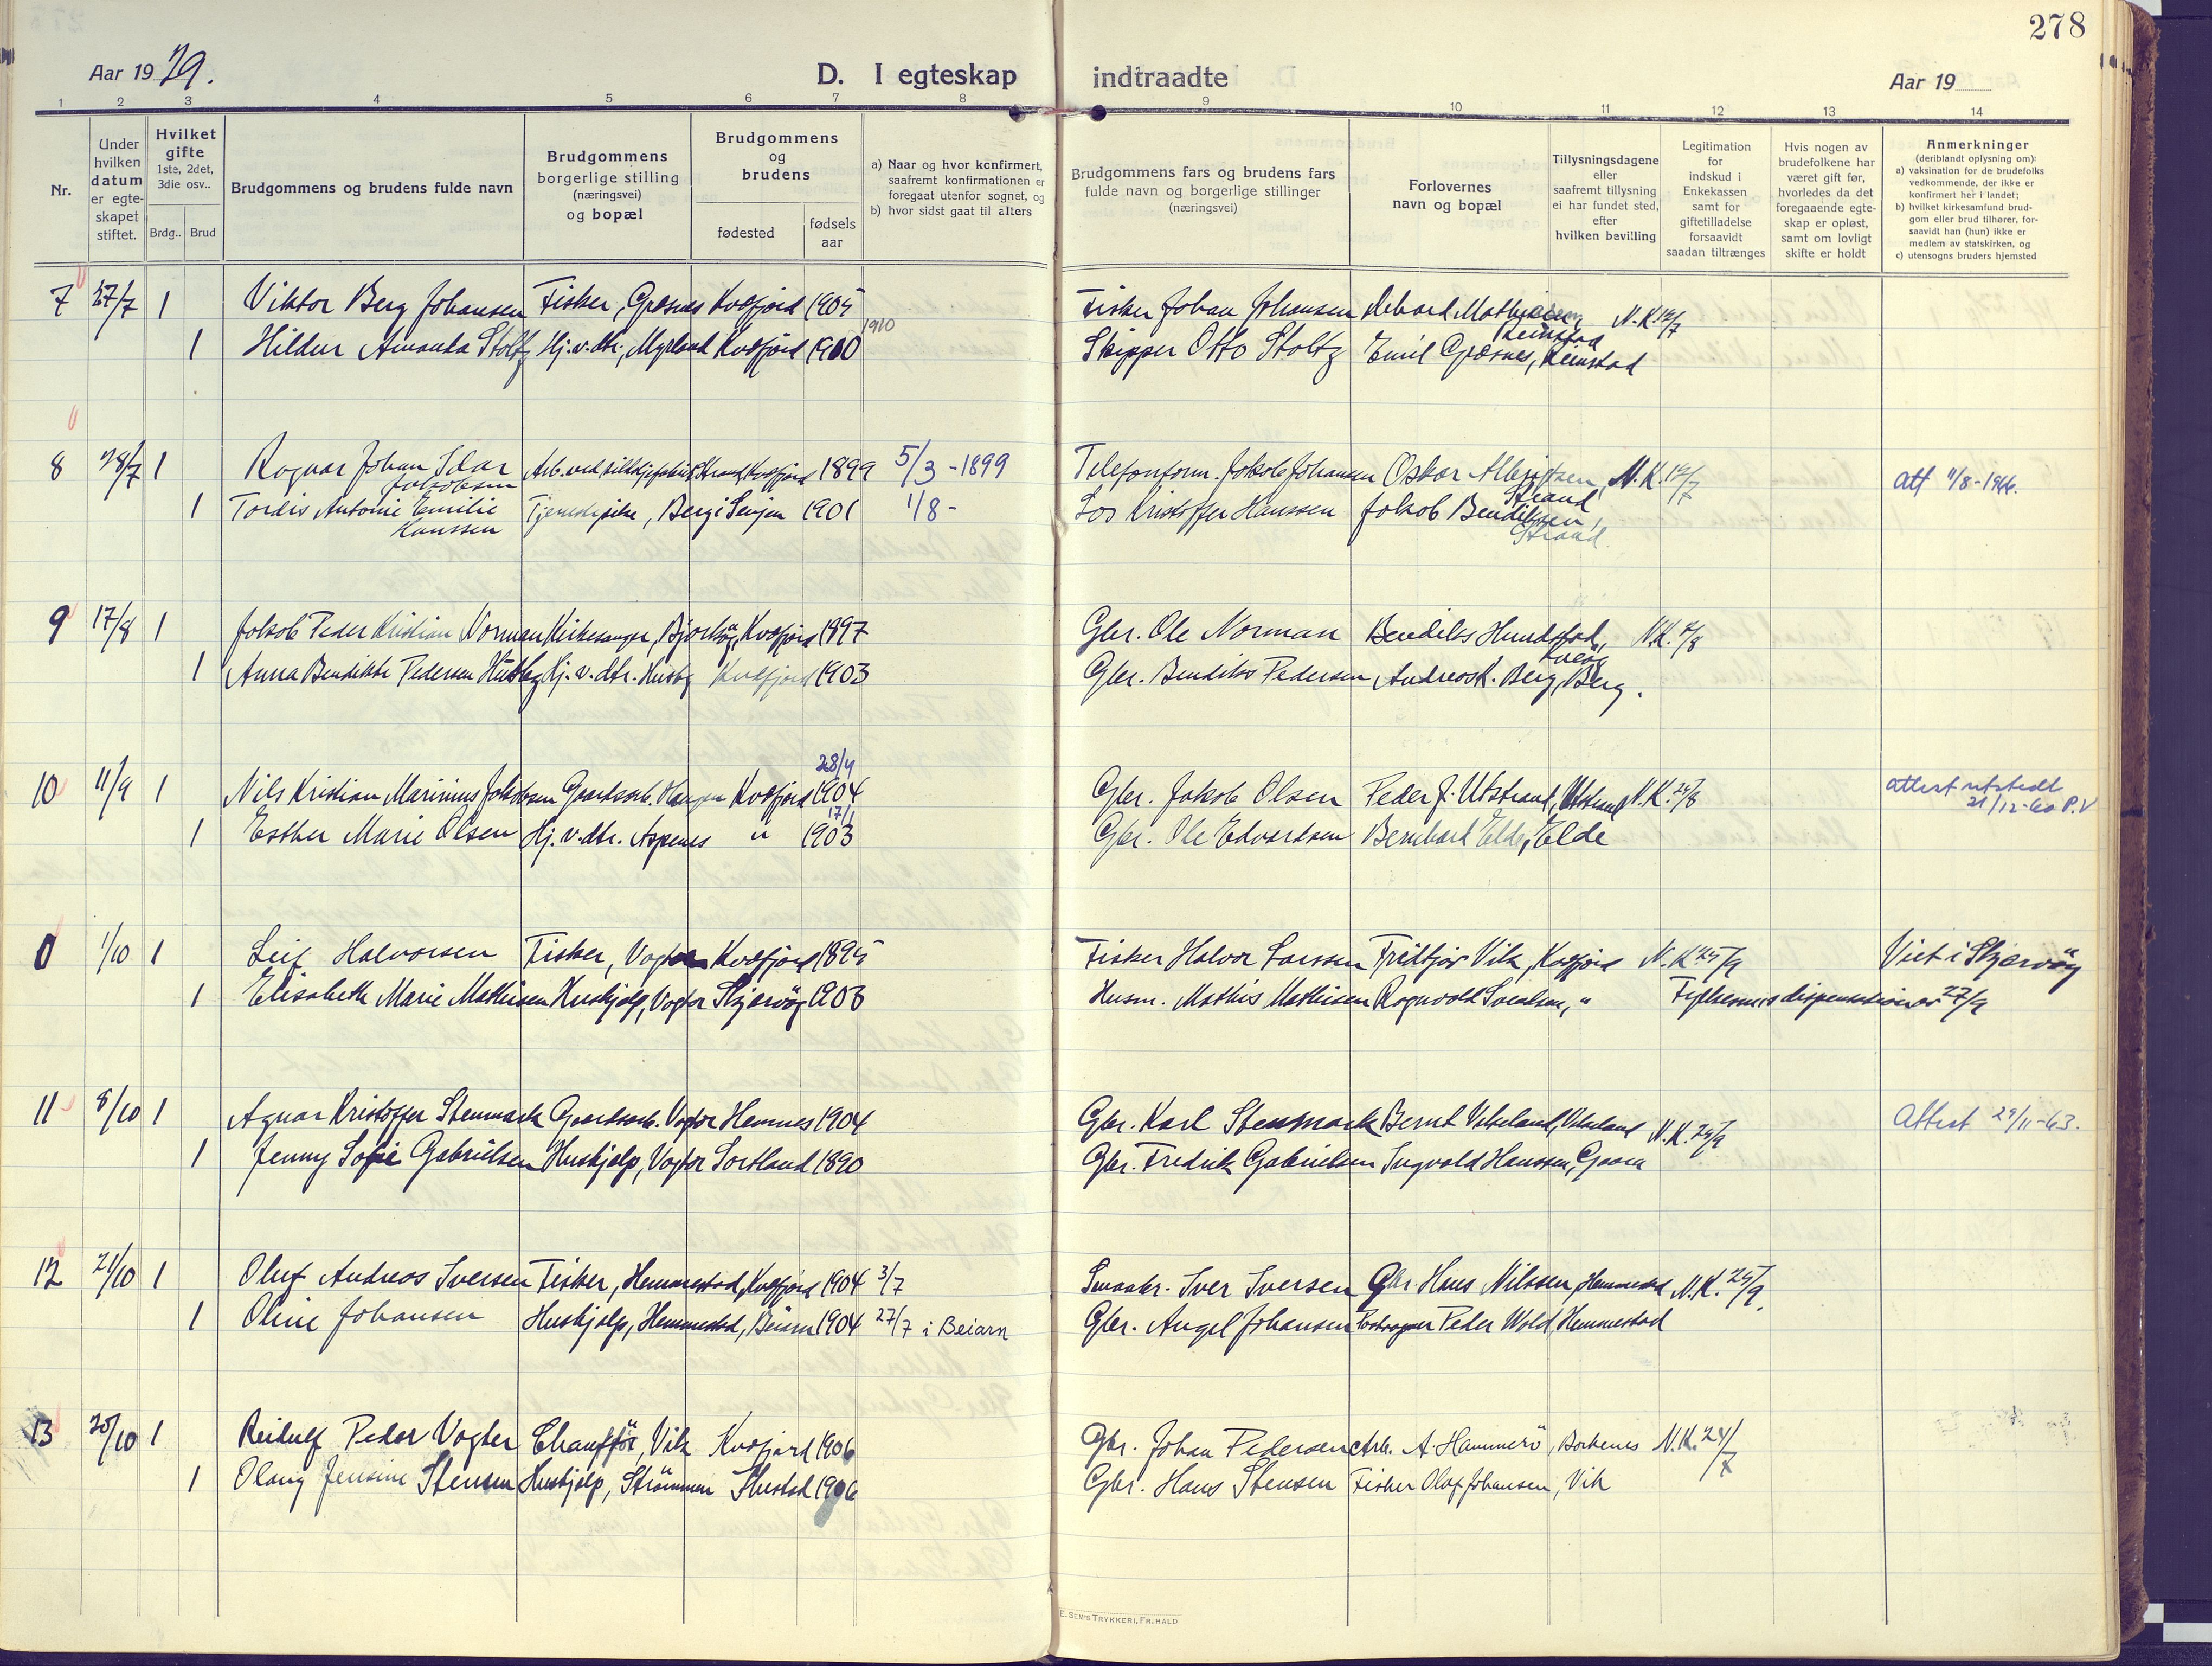 278
Aar 19 29.
D. I egteskap indtraadte
Aar 19
1 2 3 4 5 6 7 8 9 10 11 12 13 14
Nr.
Under hvilken datum er egte-skapet stiftet.
Hvilket gifte
1ste, 2det, 3die osv..
Brdg.. Brud
Brudgommens og brudens fulde navn
Brudgommens borgerlige stilling (næringsvei) og bopæl
Brudgommens og brudens
fødested
fødsels aar
a) Naar og hvor konfirmert, saafremt konfirmationen er foregaat utenfor sognet, og
b) hvor sidst gaat til alters
Brudgommens fars og brudens fars fulde navn og borgerlige stillinger (næringsvei)
Forlovernes navn og bopæl
Tillysningsdagene eller saafremt tillysning ei har fundet sted, efter hvilken bevilling
Legitimation for indskud i Enkekassen samt for giftetilladelse forsaavidt saadan tiltrænges
Hvis nogen av brudefolkene har været gift før, hvorledes da det foregaaende egte-skap er opløst, samt om lovligt skifte er holdt
Anmerkninger
(deriblandt oplysning om):
a) vaksination for de brudefolks vedkommende, der ikke er konfirmert her i landet;
b) hvilket kirkesamfund brud-gom eller brud tilhører, for-saavidt han (hun) ikke er medlem av statskirken, og
c) utensogns bruders hjemsted
7 27/7 1 Viktor Berg Johansen Fisker, Græsnes Kvæfjord 1905 Fisker Johan Johansen N.K. 12/7
1 Hildur Amanda Stoltz Hj.v.dtr., Myrland Kvæfjord 1900 1910 Skipper Otto Stoltz Emil Græsnes, Reinstad
8 28/7 1 Ragnar Johan Idar Jakobsen Strand, Kvæfjord 1899 5/3 - 1899 Telefonform. Jakob Johansen Oskar Albrigtsen, Strand N.K. 12/7 Att 11/8-1966.
1 Tordis Antonie Emilie Hanssen Tjenestepike, Berg i Senjen 1901 1/8 - Los Kristoffer Hanssen Jakob Bendiksen, Strand
9 17/8 1 Jakob Peder Kristian Norman Kirkesanger, Bjarköy, Kvæfjord 1897 Gbr. Ole Norman Bendiks Hundstad, N.K. 2/8
1 Anna Bendikte Pedersen Husby Hj.v.dtr. Husby Kvæfjord 1903 Gbr. Bendiks Pedersen Andreas K. Berg, Berg.
10 11/9 1 Nils Kristian Marinius Jakobsen Gaardsarb. Kvæfjord 28/4 1904 Gbr. Jakob Olsen Peder J. Utstrand, Utstrand N.K. 24/8 Attest utstedt 21/12-60 P.V
1 Esther Marie Olsen Hj.v.dtr. Aspenes " 17/1 1903 Gbr. Ole Edvardsen Bernhard Elde, Elde
0 1/10 1 Leif Halvorsen Fisker, Vogter Kvæfjord 1895 Fisker Halvor Larssen Fridtjov Vik, Kvæfjord N.K. 25/9 Viet i Skjervöy
1 Elisabeth Marie Mathisen Hushjelp, Vogter Skjervöy 1903 Husm. Mathis Mathisen Ragnvald Svendsen, " Fylkesmanns dispensation av 27/9
11 8/10 1 Agnar Kristoffer Stenmark Gaardsarb. Vogter Hemnes 1904 Gbr. Karl Stenmark Bernt Vebeland, Vebeland N.K. 24/9 Attest 29/11-63.
1 Jenny Sofie Gabrielsen Hushjelp, Vogter Sortland 1890 Gbr. Fredrik Gabrielsen Ingvald Hanssen, Gaara
12 21/10 1 Oluf Andreas Iversen Fisker, Hemmestad, Kvæfjord 1904 3/7 Smaabr. Iver Iversen Gbr. Hans Nilssen, Hemmestad N.K. 25/9.
1 Oline Johansen Hushjelp, Hemmestad, Beiarn 1904 27/7 i Beiarn Gbr. Angel Johansen Peder Wold, Hemmestad
13 20/10 1 Reidulf Peder Vogter Chaufför, Vik Kvæfjord 1906 Gbr. Johan Pedersen Arb. A. Hammerö, Borkenes N.K. 24/7
1 Olaug Jensine Stensen Hushjelp, Strömmen Hustad 1906 Gbr. Hans Stensen Fisker Olaf Johansen, Vik
E. SEM'S TRYKKERI, FR.HALD